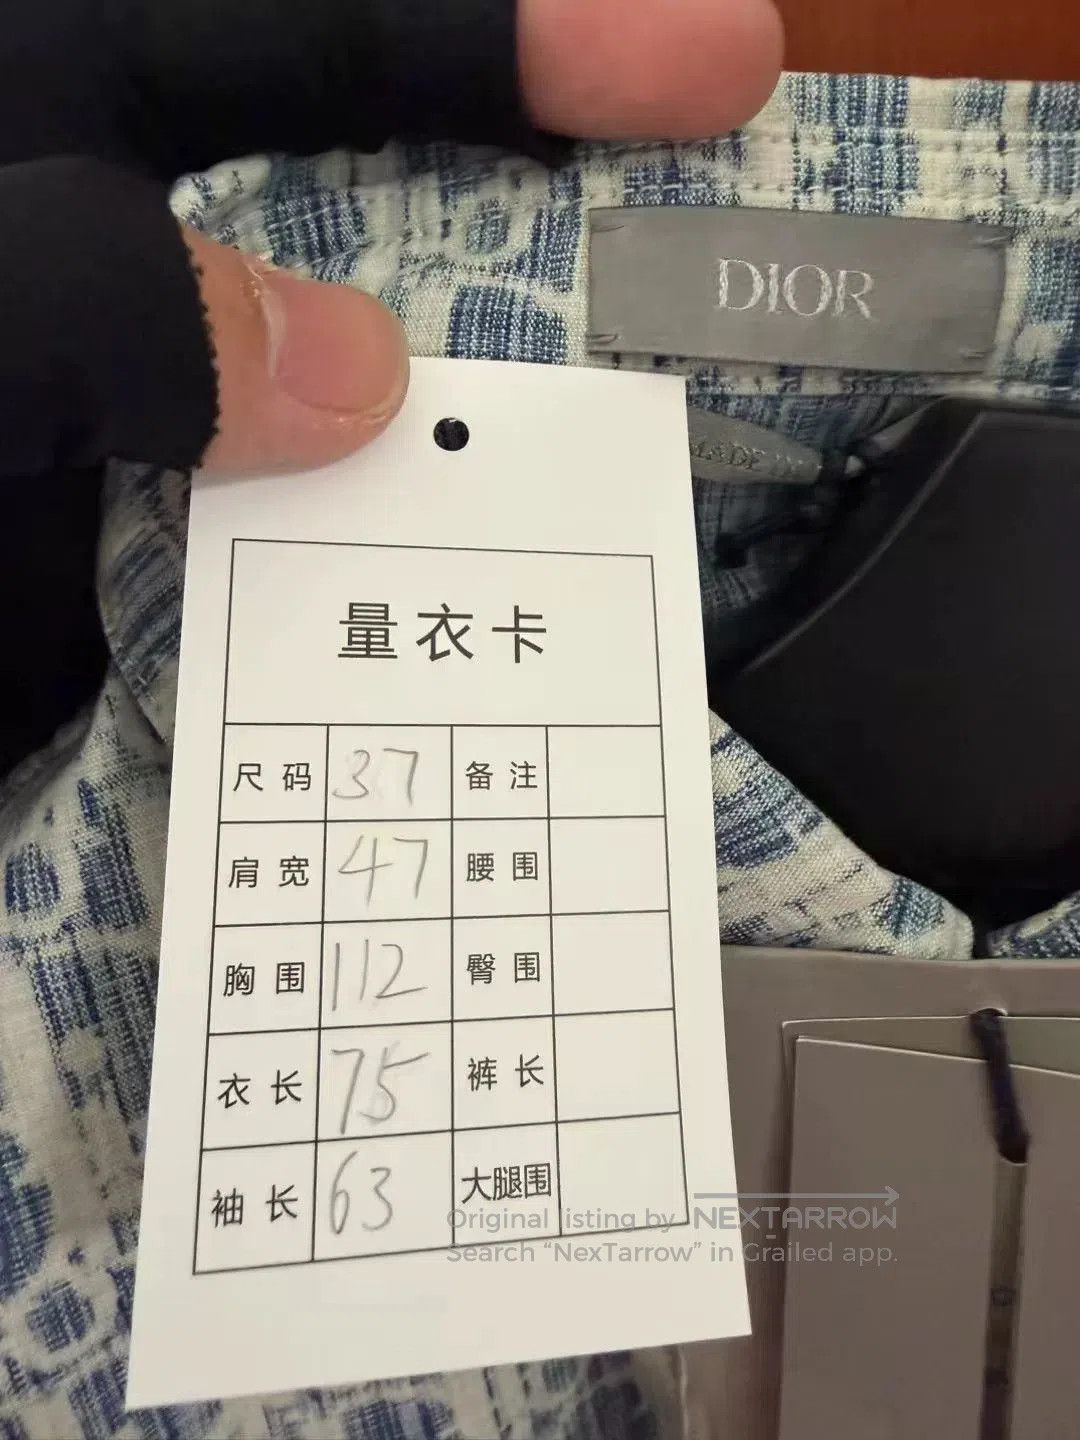 DIOR
MADE I
量衣卡
尺码 37 备注
肩宽 47 腰围
胸围 112 臀围
衣长 75 裤长
袖长 63 大腿围
Original listing by NEXTARROW
Search “NexTarrow” in Grailed app.